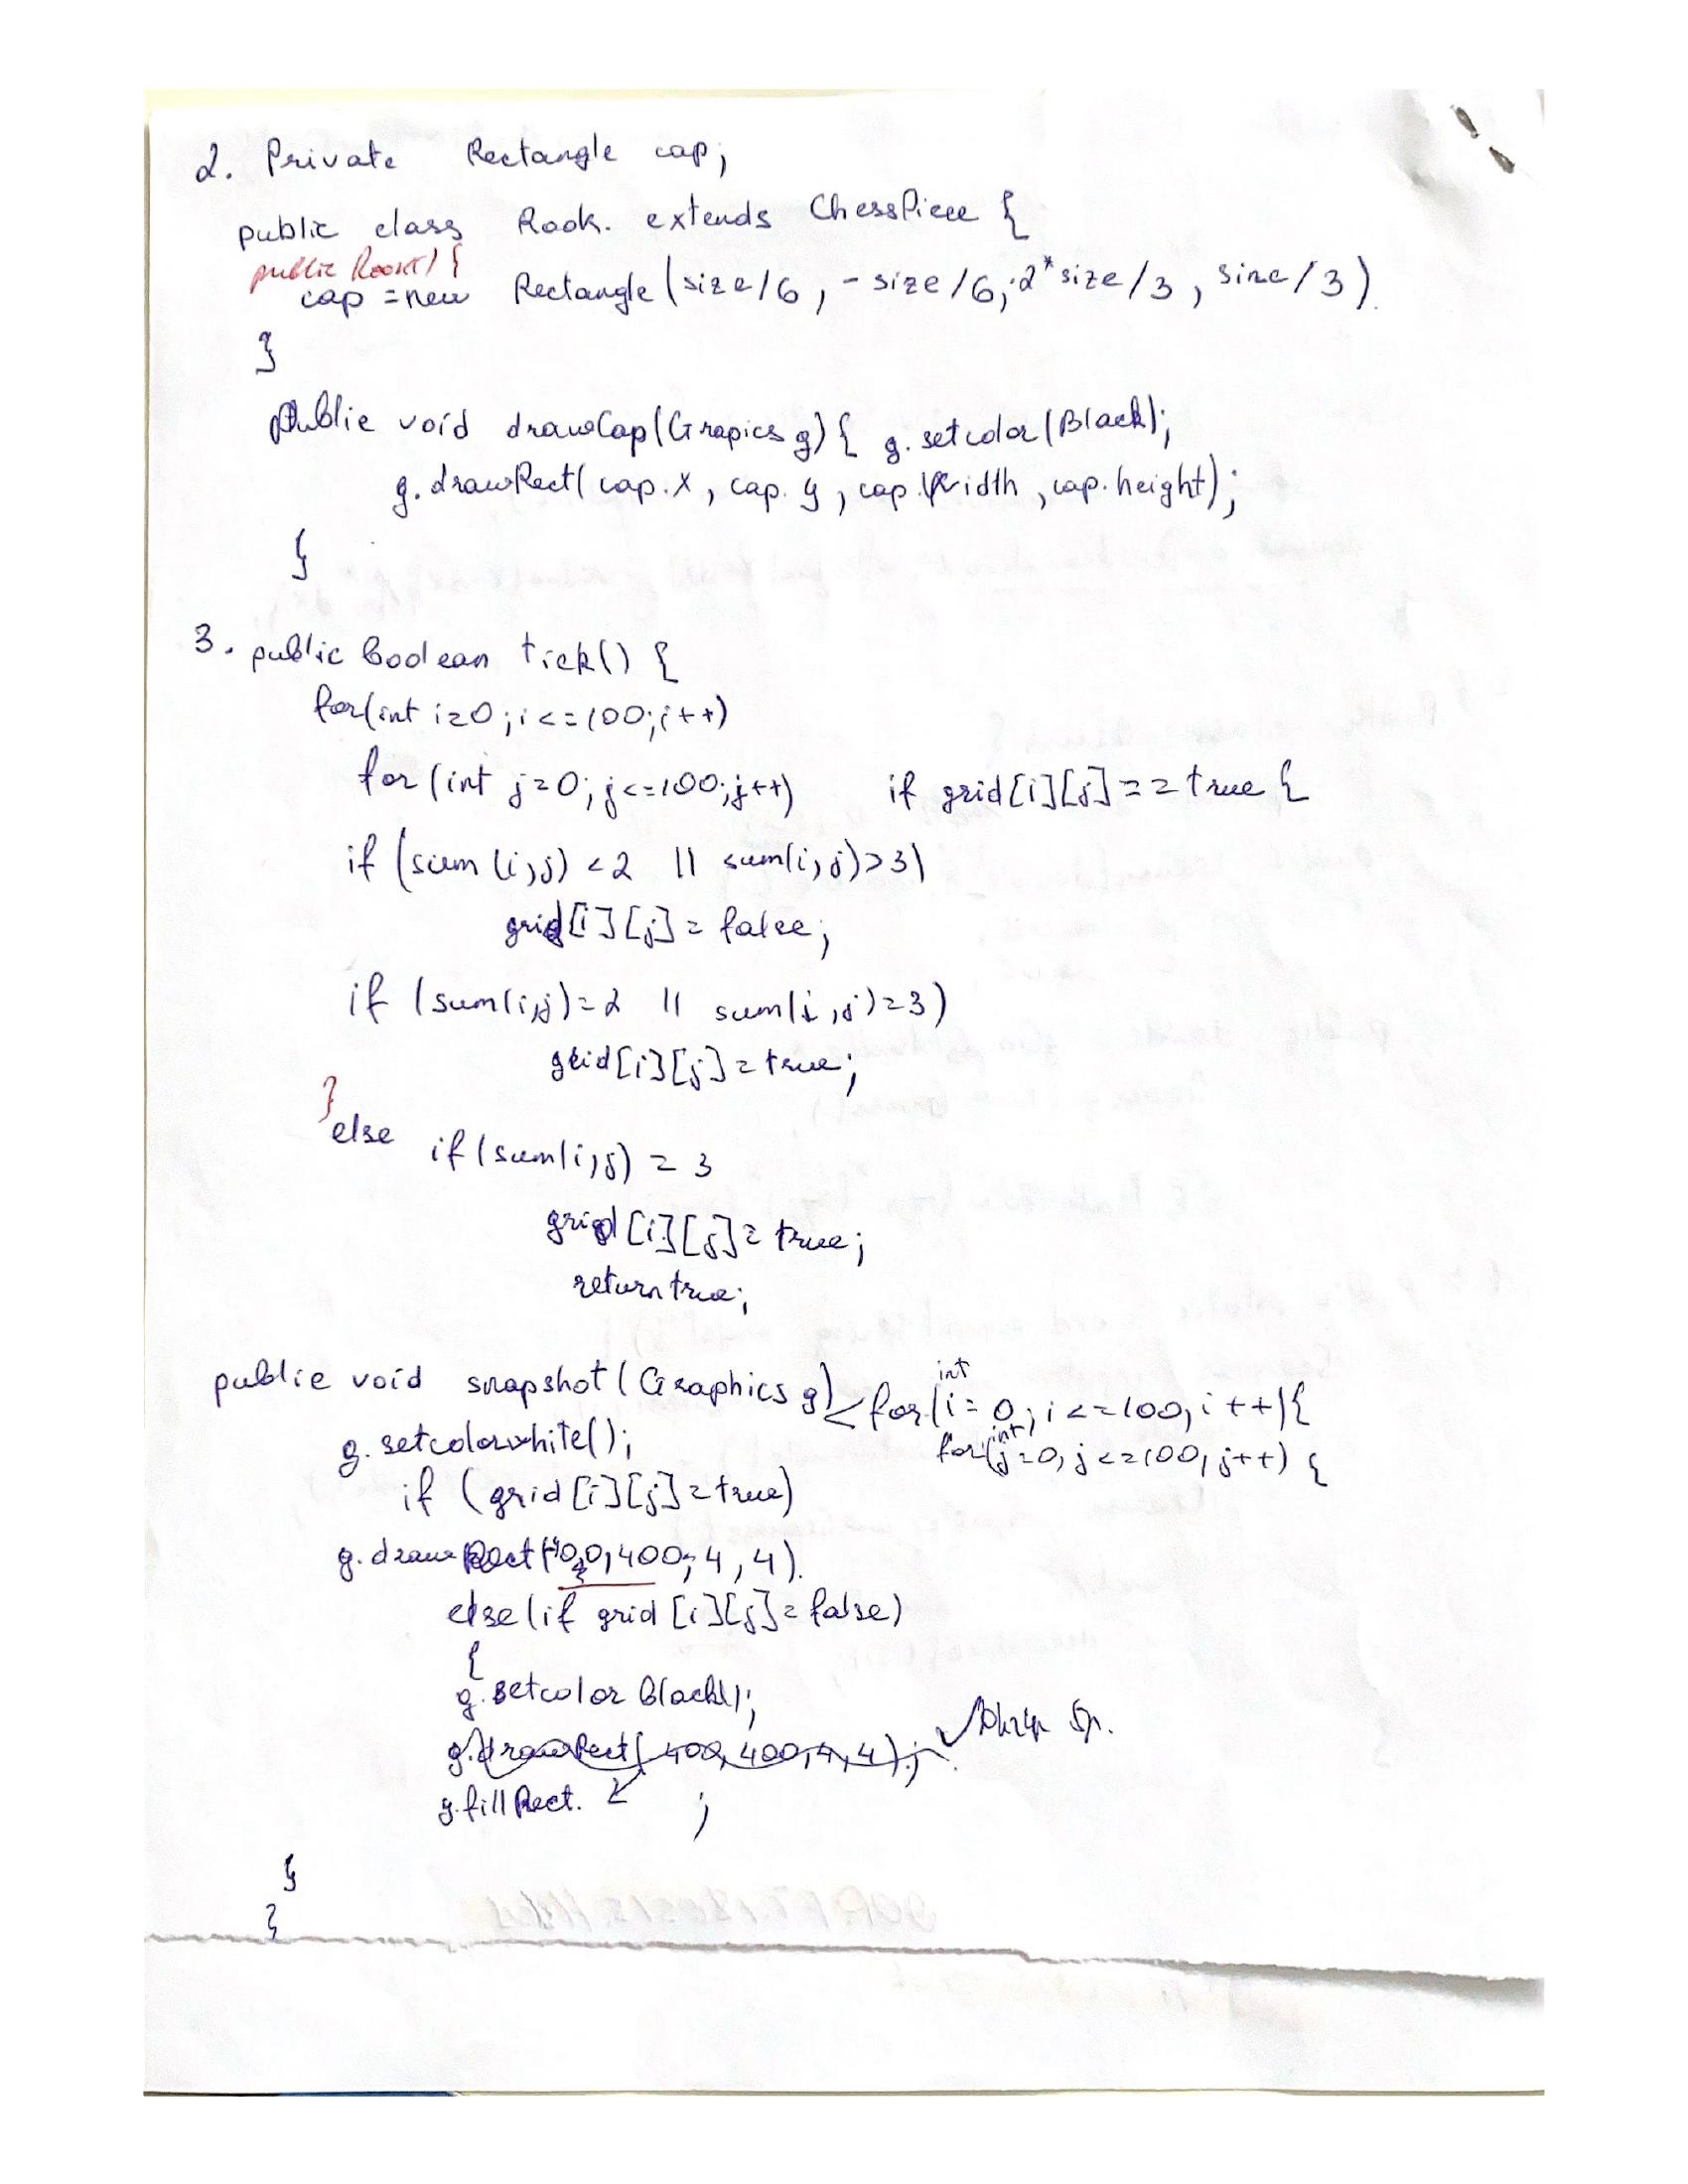 2. Private Rectangle cap;
public class Rook. extends ChessPiece {
public Rook() {
cap = new Rectangle (size/6, - size/6, 2*size/3, size/3).
}
public void drawCap(Grapics g) { g. setcolor (Black);
g. drawRect( cap.x, cap. y, cap.width, cap.height);
}
3. public boolean tick() {
for(int i=0; i<=100; i++)
for (int j=0; j<=100; j++) if grid[i][j]==true {
if (sum (i,j) <2 || sum(i,j)>3)
grid[i][j] = false;
if (sum(i,j)=2 || sum(i,j)=3)
grid[i][j] = true;
}
else if (sum(i,j) = 3
grid [i][j] = true;
return true;
public void snapshot (Graphics g) for (int i=0; i<=100, i++){
g. setcolorwhite(); for(int j=0, j<=100, j++) {
if (grid [i][j]=true)
g. drawRect(400,400, 4, 4).
else(if grid [i][j]=false)
{
g. setcolor Black();
g. drawRect( 400, 400, 4, 4);
g. fillRect. ;
}
}